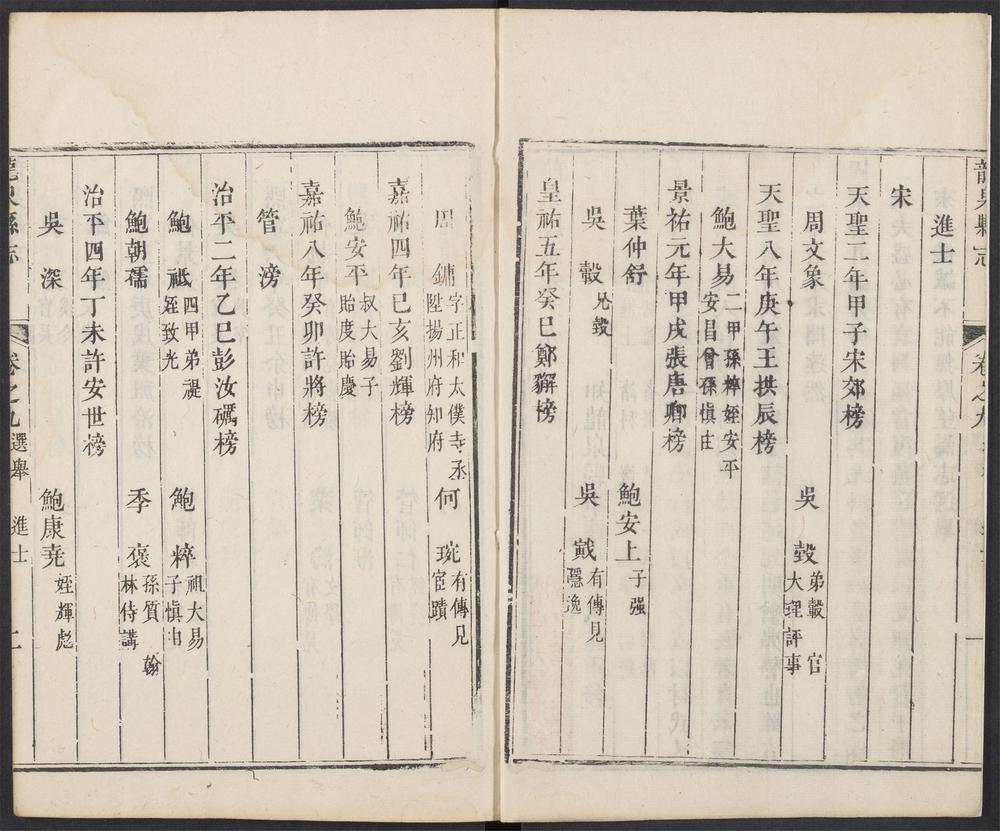 進士
宋
天聖二年甲子宋郊榜
周文象 吳瑴弟轂官大理評事
天聖八年庚午王拱辰榜
鮑大易二甲孫粹姪安平安昌曾孫愼由
景祐元年甲戌張唐卿榜
葉仲舒 鮑安上子强
吳轂兄瑴 吳戴有傳見隱逸
皇祐五年癸巳鄭獬榜
周鏞字正和太僕寺丞陞揚州府知府 何琬有傳見宦蹟
嘉祐四年己亥劉輝榜
鮑安平叔大易子貽度貽慶
嘉祐八年癸卯許將榜
管滂
治平二年乙巳彭汝礪榜
鮑祗四甲弟禔姪致光 鮑粹祖大易子愼由
鮑朝孺 季褒孫質翰林侍講
治平四年丁未許安世榜
吳深 鮑康堯姪輝彪
龍泉縣志 卷之九選舉 進士 二